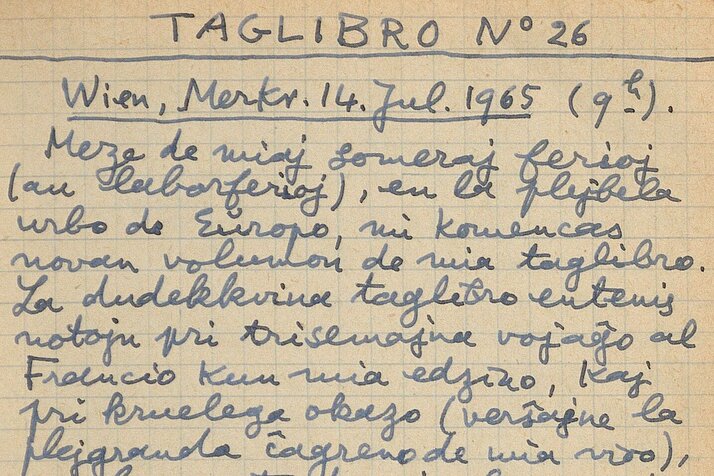 TAGLIBRO Nº 26
Wien, Merkr. 14. Jul. 1965 (9h).
Meze de miaj someraj ferioj
(au laborferioj), en la plejbela
urbo de Eŭropo, mi komencas
novan volumon de mia taglibro.
La dudekkvina taglibro entenis
notojn pri trisemajna vojaĝo al
Francio kun mia edzino, kaj
pri kruelega okazo (verŝajne la
plejgranda ĉagreno de mia vivo),